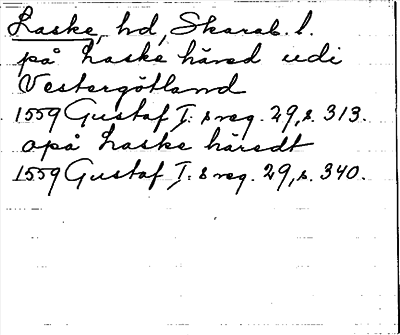 Laske, hd, Skarab. l.
på Laske häred udi
Vestergötland
1559 Gustaf I:s reg. 29, s. 313.
opå Laske häredt
1559 Gustaf I:s reg. 29, s. 340.